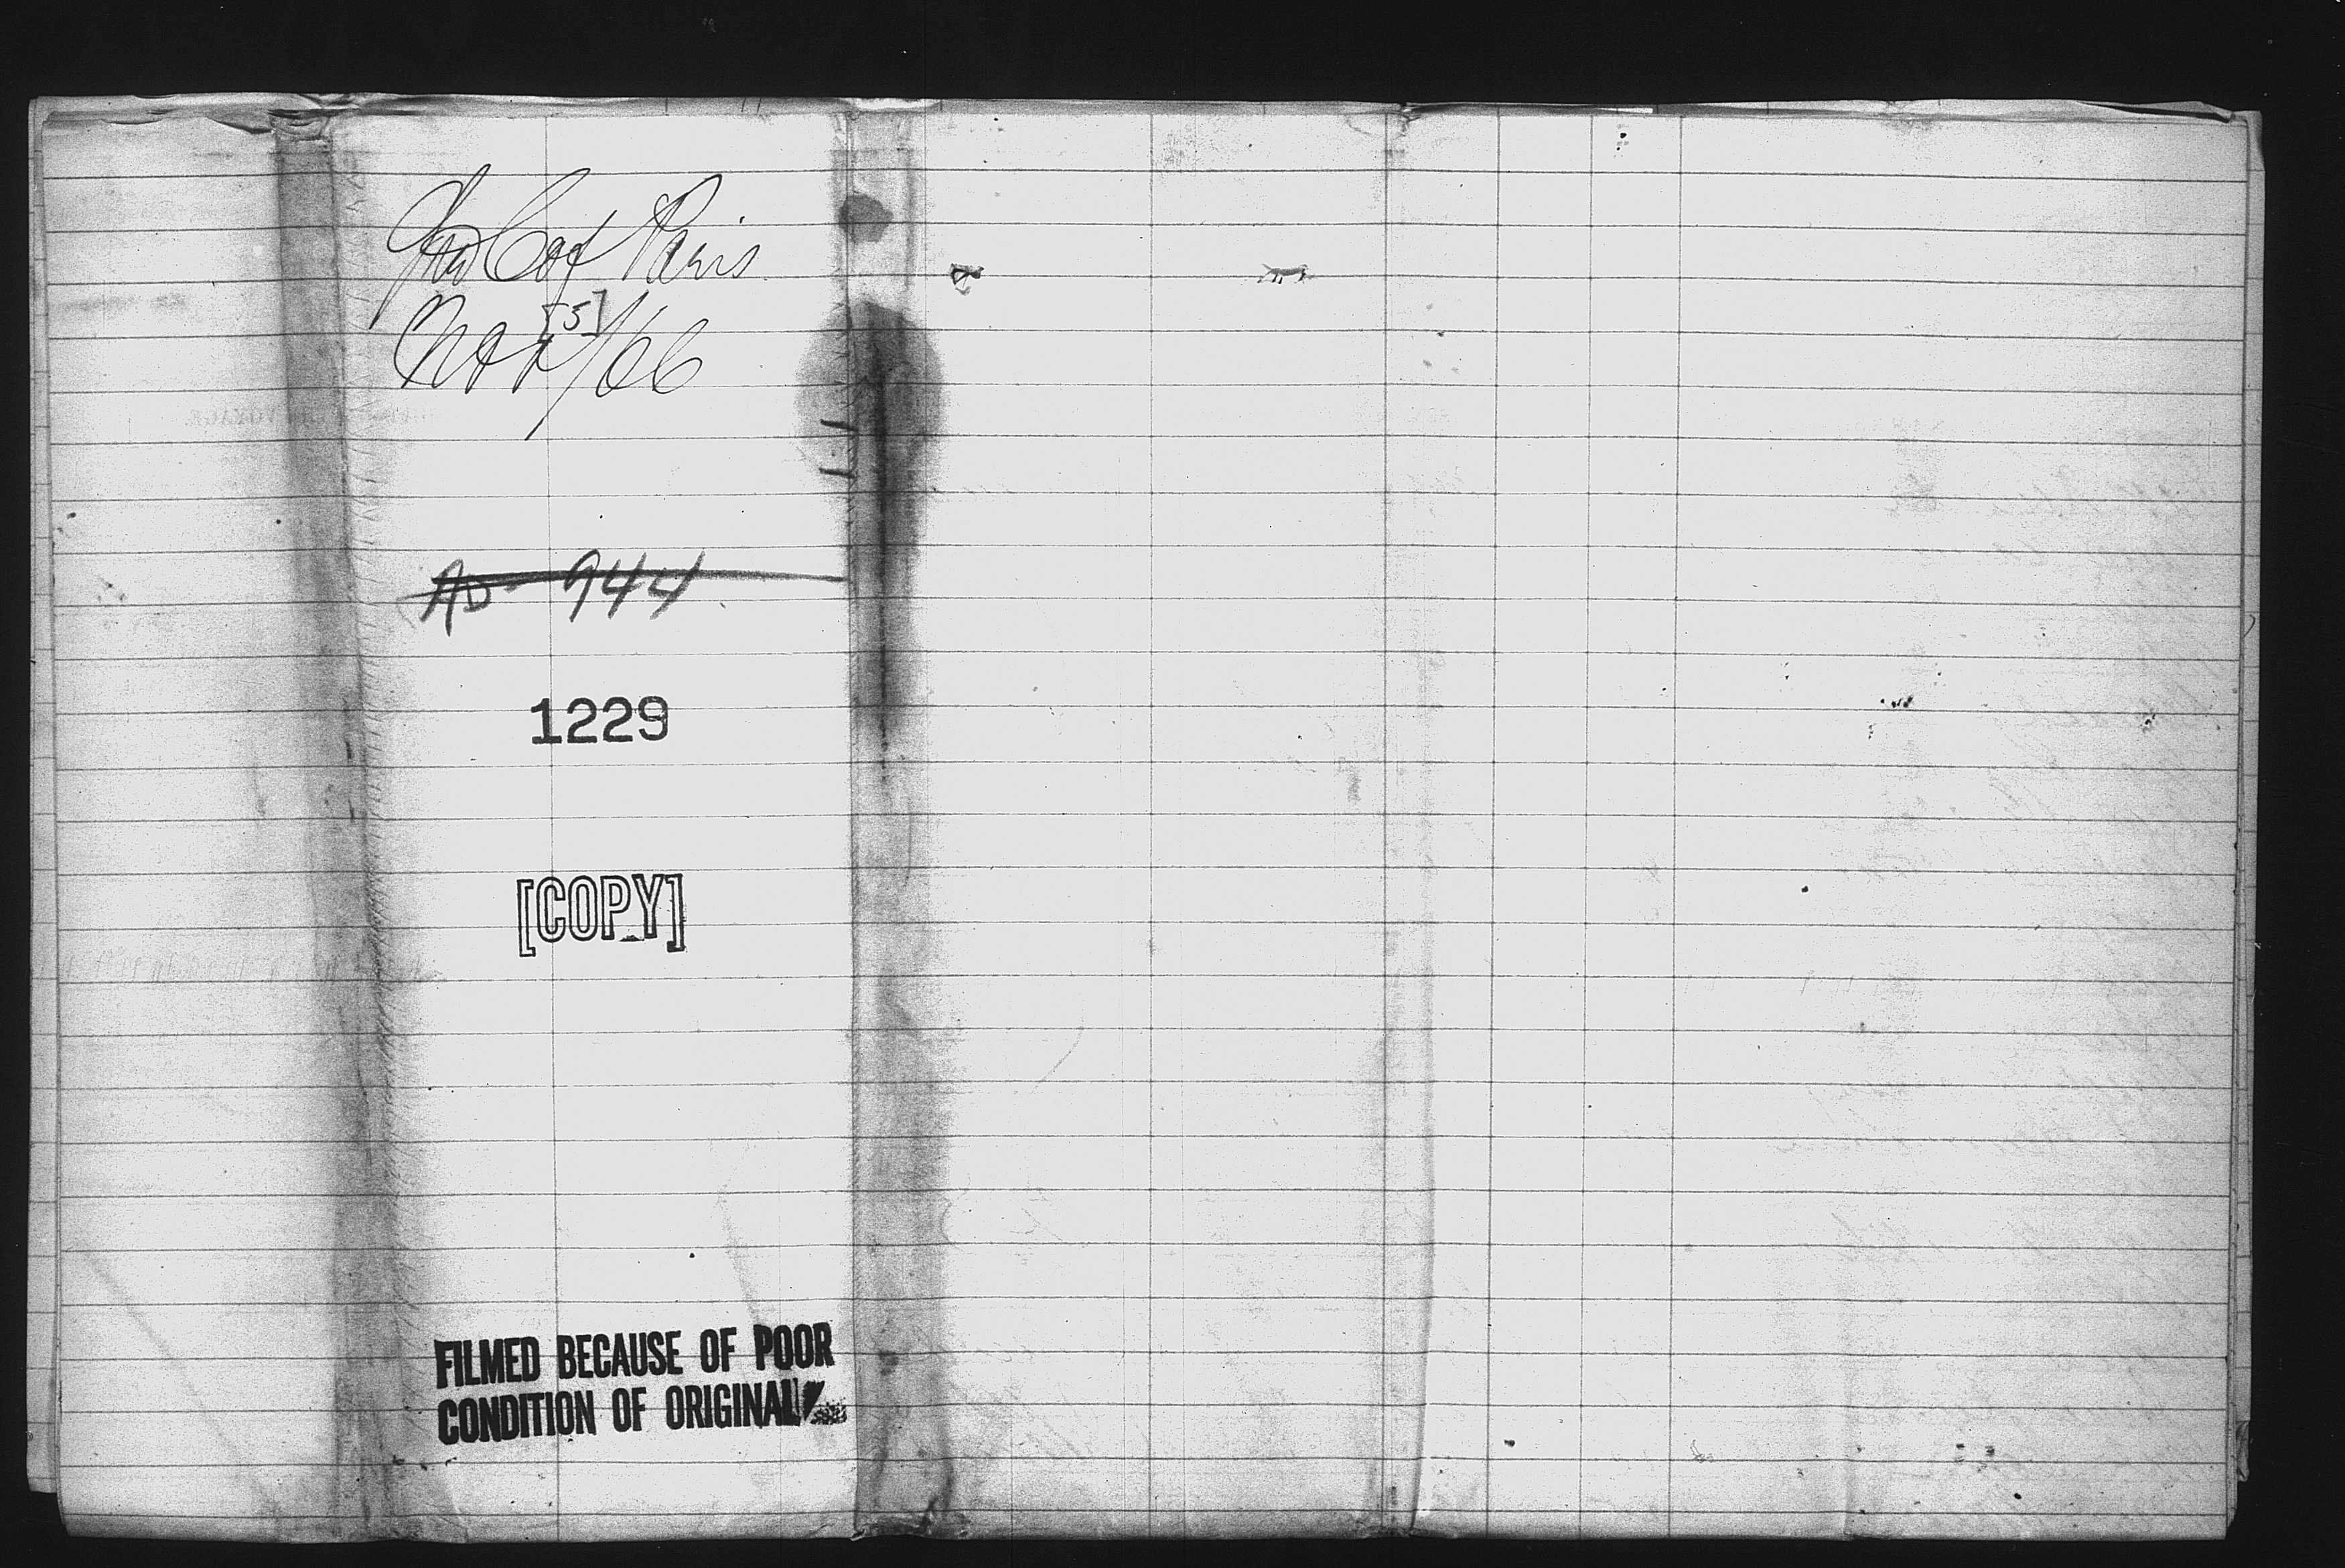 City of Paris
Nov [5]/66
AD-944
1229
[COPY]
FILMED BECAUSE OF POOR
CONDITION OF ORIGINAL